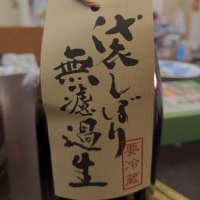 袋しぼり
無濾過生
要冷蔵